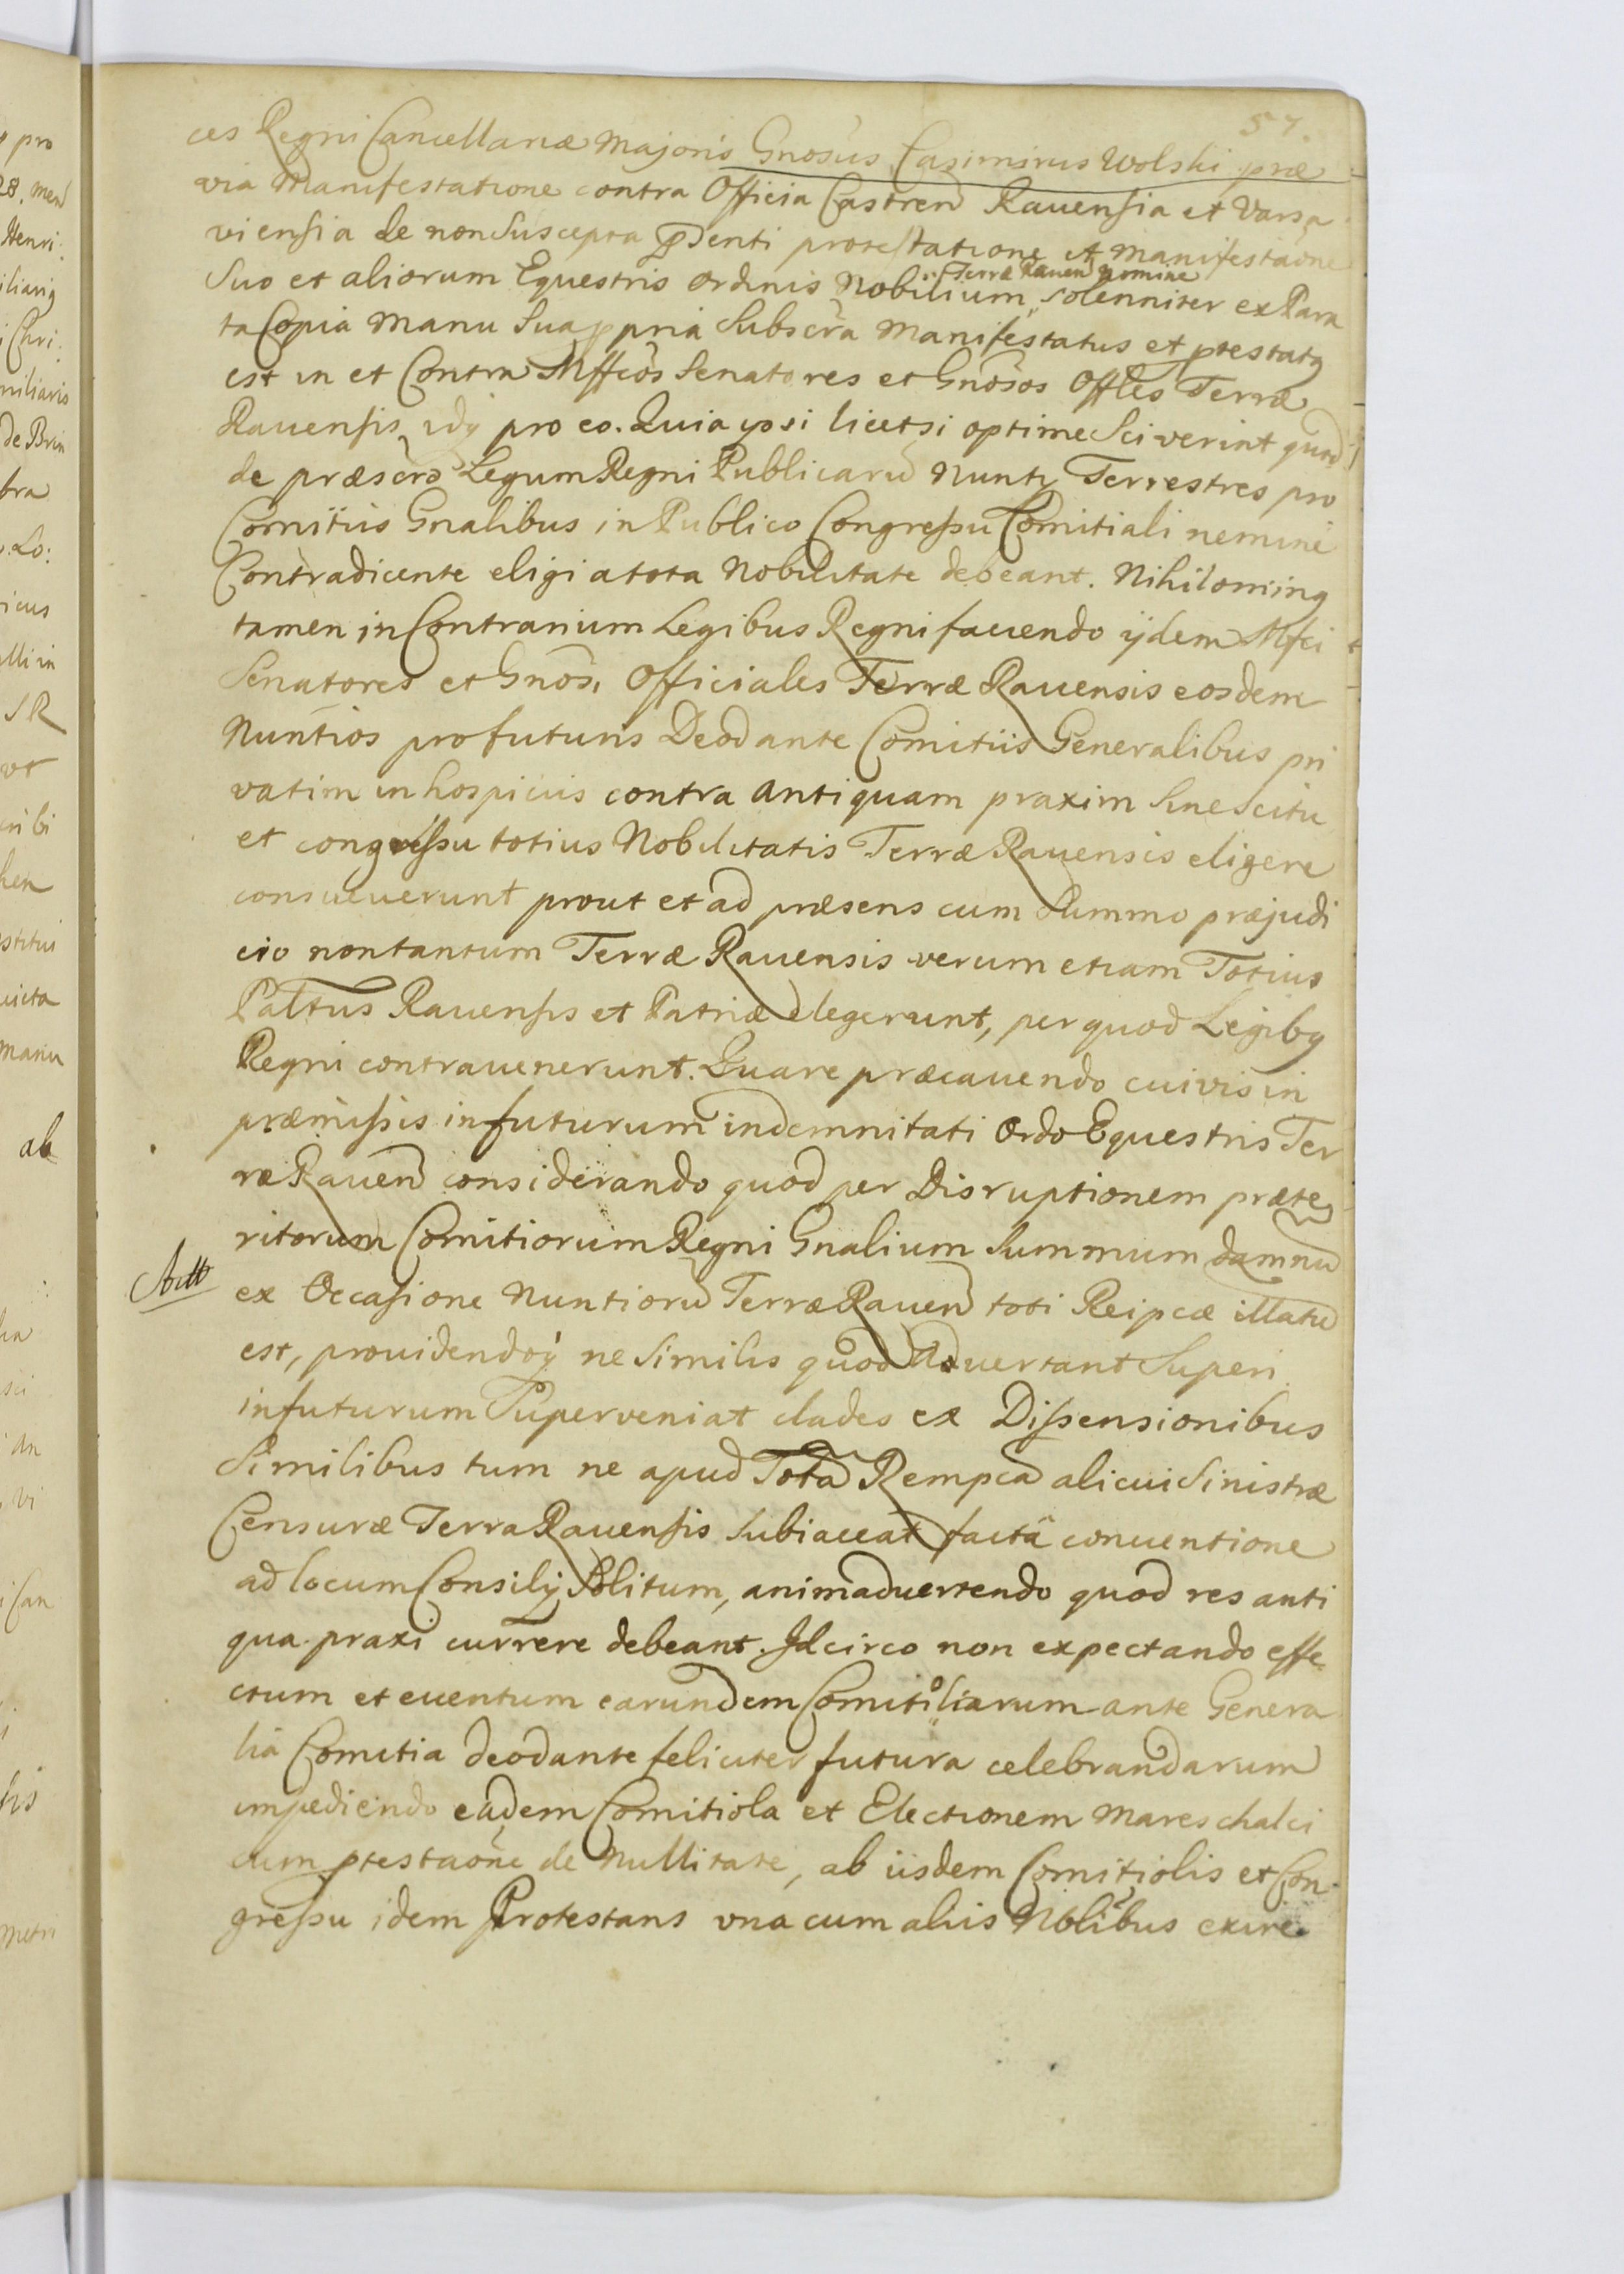 57.
ces Regni Cancellariæ Majoris Gnosus Casimirus Wolski præ
via Manifestatione contra Officia Castren Rauensia et Varsa
viensia de non Suscepta pnti protestatione et Manifestaone
Suo et aliorum Equestris Ordinis Nobilium Terræ Rauen nomine solenniter ex Para
ta Copia Manu Sua ppria Subscra Manifestatus et ptestatq
est in et Contra Mffcos Senatores et Gnosos Offles Terræ
Rauensis idq pro eo. Quia ipsi licet si optime Sciverint quod
de præscro Legum Regni Publicaru Nuntij Terrestres pro
Comitiis Gnalibus in Publico Congressu Comitiali nemine
Contradicente eligi a tota Nobilitate debeant. Nihilominq
tamen in Contrarium Legibus Regni faciendo ijdem Mfci
Senatores et Gnosi Officiales Terræ Rauensis eosdem
Nuntios pro futuris Deo dante Comitiis Generalibus pri
vatim in hospiciis contra antiquam praxim Sine Scitu
et congressu totius Nobilitatis Terræ Rauensis eligere
consueuerunt prout et ad præsens cum Summo præjudi
cio non tantum Terræ Rauensis verum etiam Totius
Paltus Rauensis et Patriæ elegerunt, per quod Legibq
Regni contrauenerunt. Quare præcauendo cuivis in
præmissis in futurum indemnitati Ordo Equestris Ter
ræ Rauen considerando quod per Disruptionem præte
ritorum Comitiorum Regni Gnalium Summum damnu
ex Occasione Nuntioru Terræ Rauen toti Reipcæ illatu
est, prouidendoq ne Similis quod Aduertant Superi
in futurum Superveniat clades ex Dissensionibus
Similibus tum ne apud Tota Rempca alicui Sinistræ
Censuræ Terra Rauensis Subiaceat facta conuentione
ad locum Consilij Solitum, animaduertendo quod res anti
qua praxi currere debeant. Idcirco non expectando effe
ctum et euentum earundem Comitioliarum ante Genera
lia Comitia deo dante feliciter futura celebrandarum
impediendo eadem Comitiola et Electionem Mareschalci
cum ptestaone de Nullitate, ab iisdem Comitiolis et Con
gressu idem Protestans vna cum aliis Noblibus exire